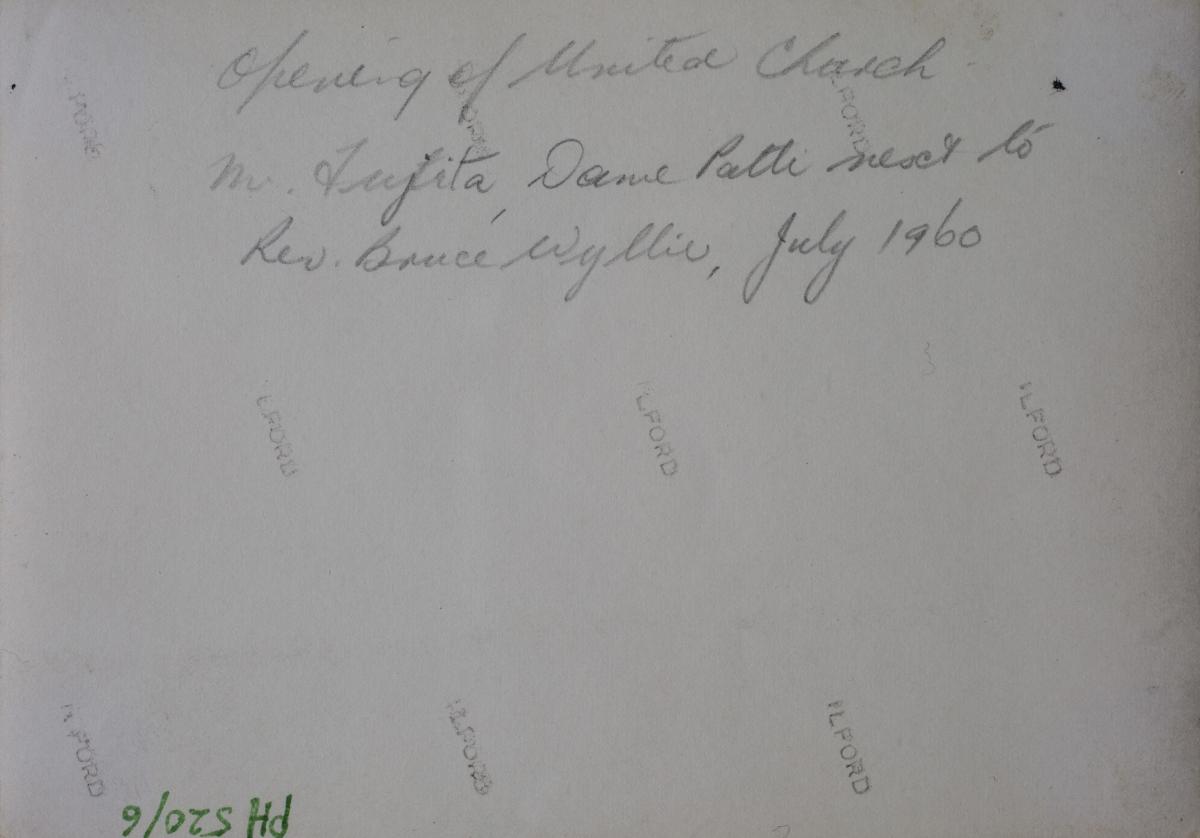 Opening of United Church
Mr. Fujita, Dame Patti next to
Rev. Bruce Wyllie, July 1960
ILFORD
ILFORD
ILFORD
ILFORD
ILFORD
ILFORD
ILFORD
ILFORD
ILFORD
PH 520/6